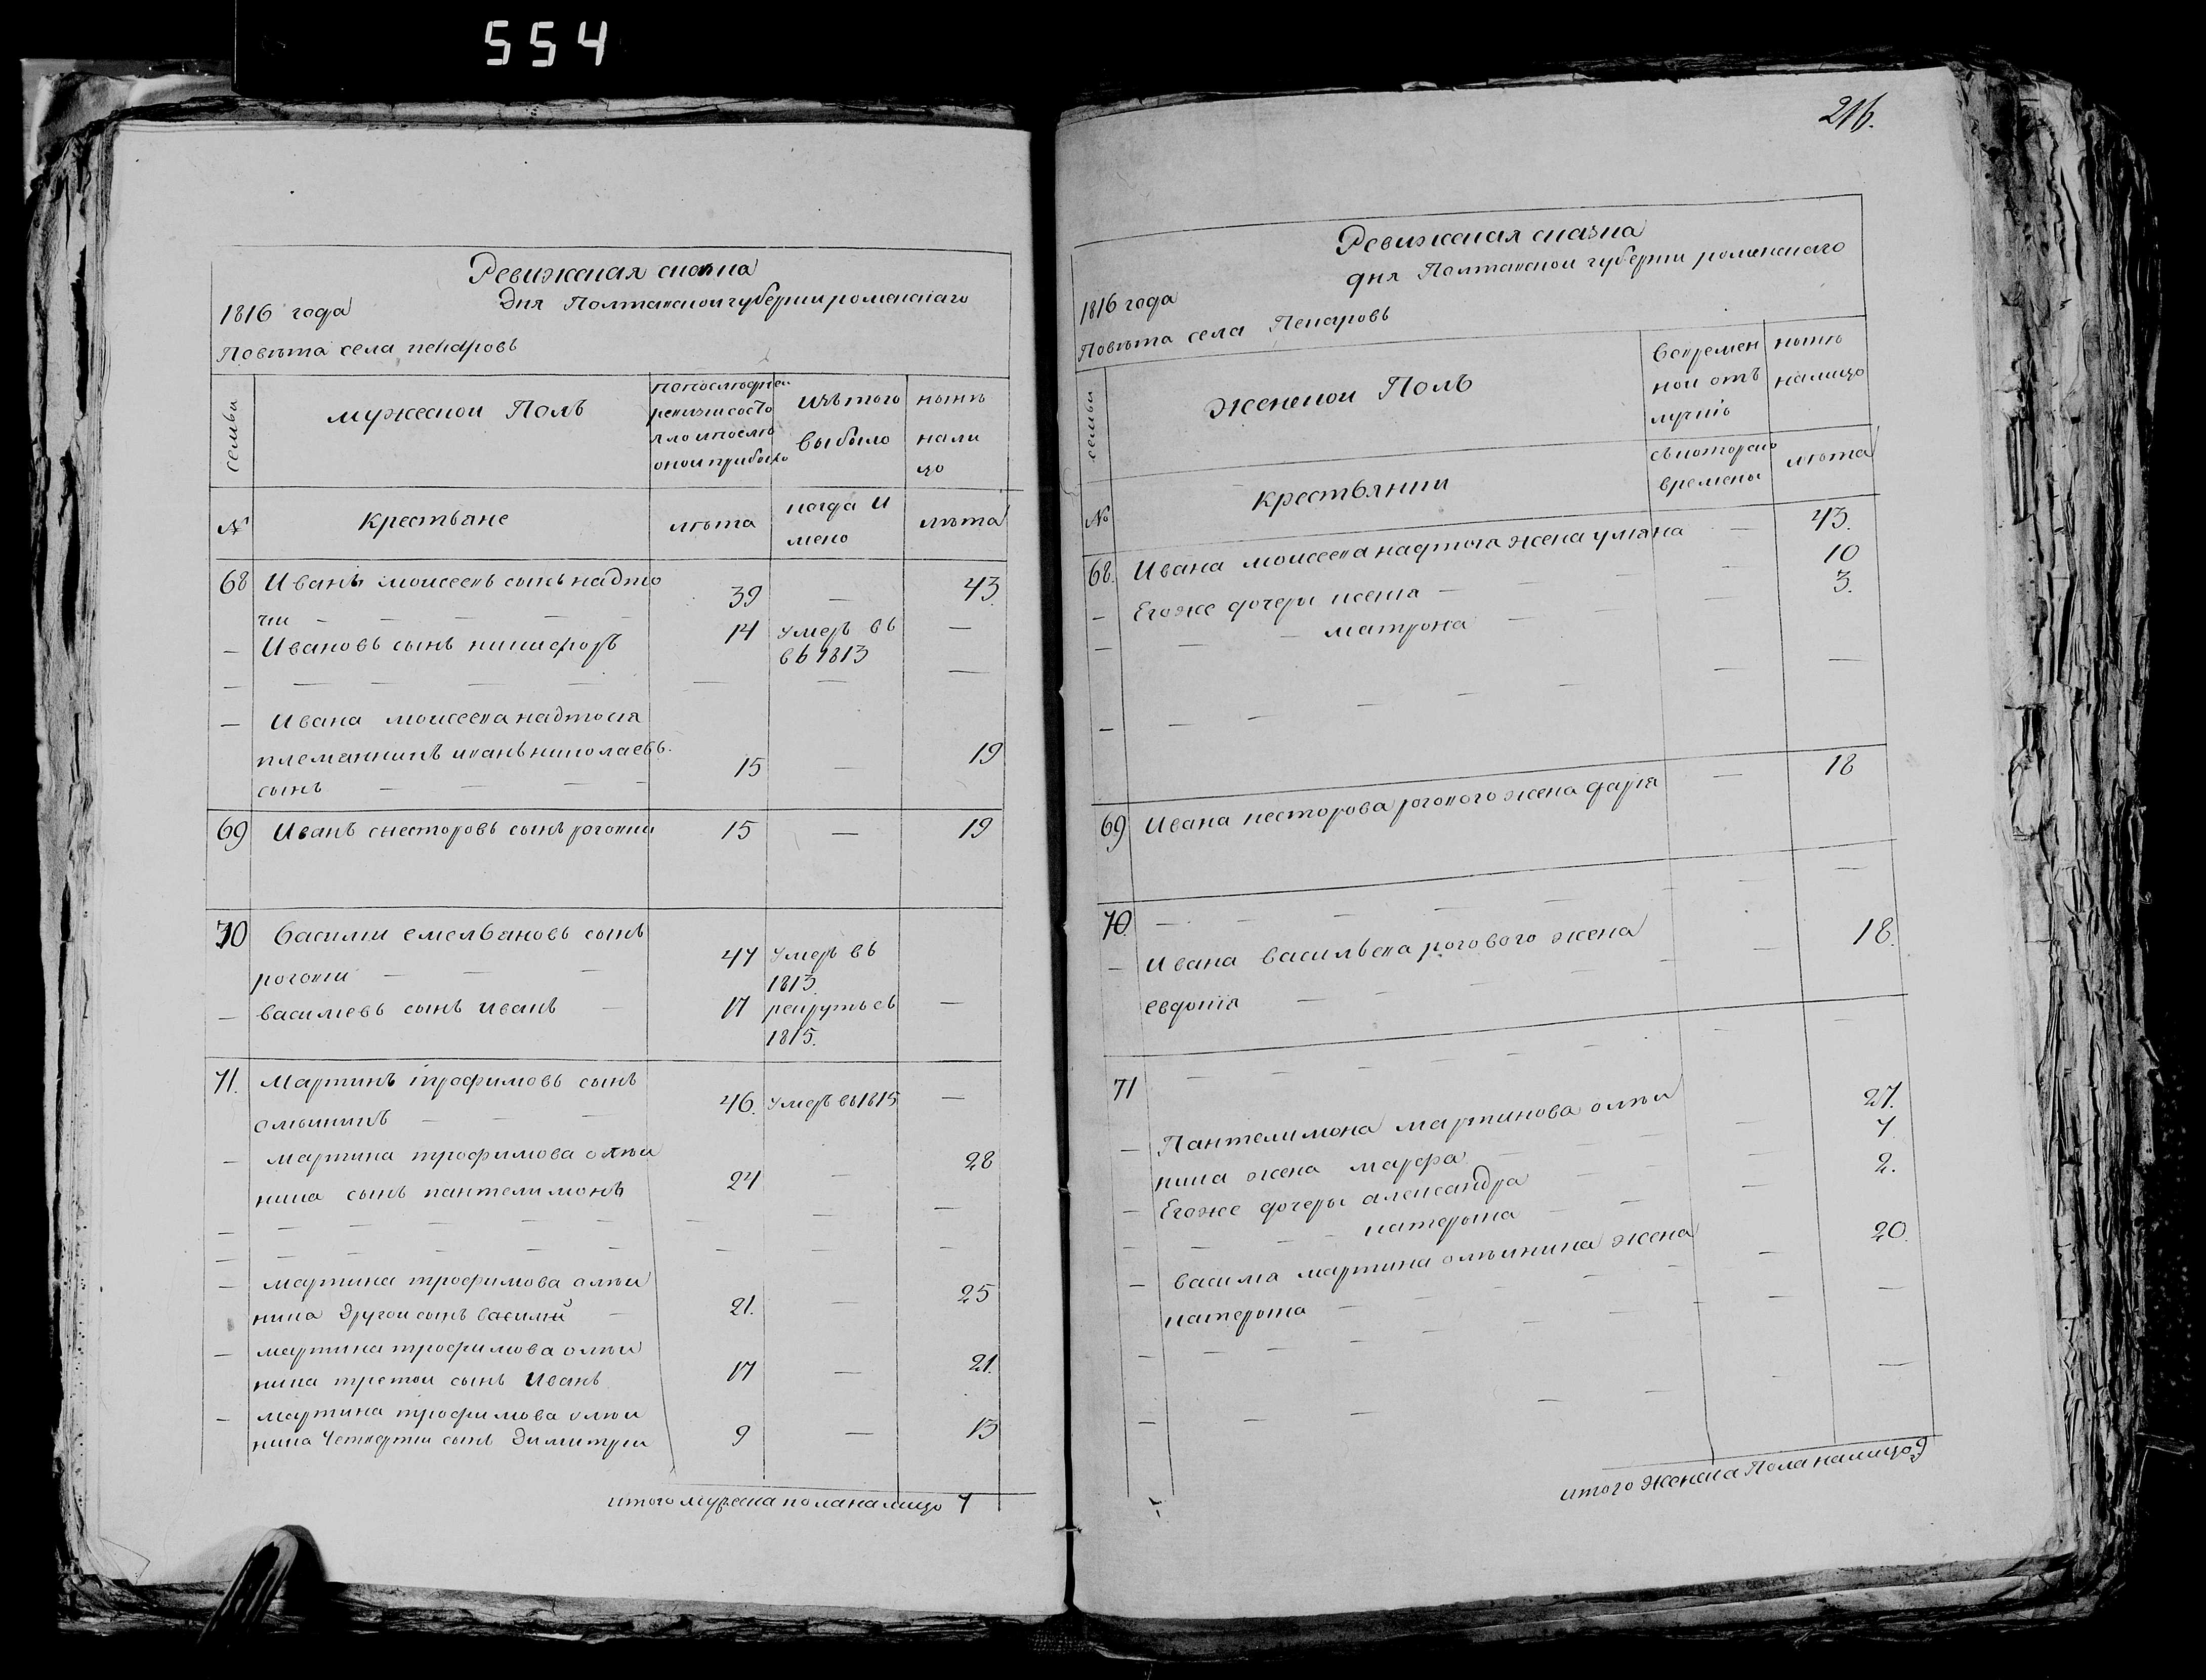 554
Ревижская сказка
1816 года дня Полтавской губерни роменскаго
Повѣта села пекаровъ
семьи
мужескои Полъ
попослюдней
ревизисосто
яло ипослѣ
онои прибыло
изътого
выбыло
нынѣ
нали
цо
№
Крестьяне
лѣта
когда И
мено
лѣта
68 Иванъ моисеевъ сынъ надто
чии — — — — 39 — 43.
— Ивановъ сынъ никифоръ 14 умеръ въ —
въ 1813
— — — — — — — —
— Ивана моисеева надточия
племянникъ иванъ николаевъ
сынъ — — — 15 — 19
69 Иванъ снесторовъ сынъ роговии 15 — 19
70 Василии емельановъ сынъ
роговии — — 47 умеръ въ
1813.
— василиевъ сынъ иванъ — 17 рекрутъ съ —
1815.
71. Мартинъ трофимовъ сынъ
олѣиникъ — — 46. умеръ въ 1815 —
— мартина трофимова олѣи
ника сынъ пантелимонъ 24 — 28
— — — — — — — — —
— — — — — — — — —
— мартина трофимова олѣи
ника другои сынъ василий — 21. — 25
— мартина трофимова олѣи
ника третои сынъ Иванъ 17 — 21.
— мартина трофимова олѣи
ника Четвертии сынъ Димитрии 9 — 13
итого мужеска пола налицо 7
216.
Ревижская сказка
1816 года дня Полтавской губерни роменскаго
Повѣта села Пекаровъ
семьи
Женскои Полъ
Вовремен
нои отъ
лучкѣ
нынѣ
налицо
№
крестьянки
съкотораго
времены
лѣта
68. Ивана моисеева надточия жена уляна — 43.
— Егоже дочеры ксения — — — 10
— — — матрона — — 3.
— — — — — — — —
69 Ивана несторова рогового жена дария — 18
70. — — — — — — —
— Ивана васильева рогового жена — 18.
евдокия — — — —
71 — — — — — — —
— Пантелимона мартинова олѣи
ника жена марфа — — 27.
— Егоже дочеры александра — — 7
— — — катерына — — 2.
— васила мартина олѣиника жена — 20.
катерына — — — — —
— — — — — — — —
— — — — — — —
итого Женска Пола налицо 9